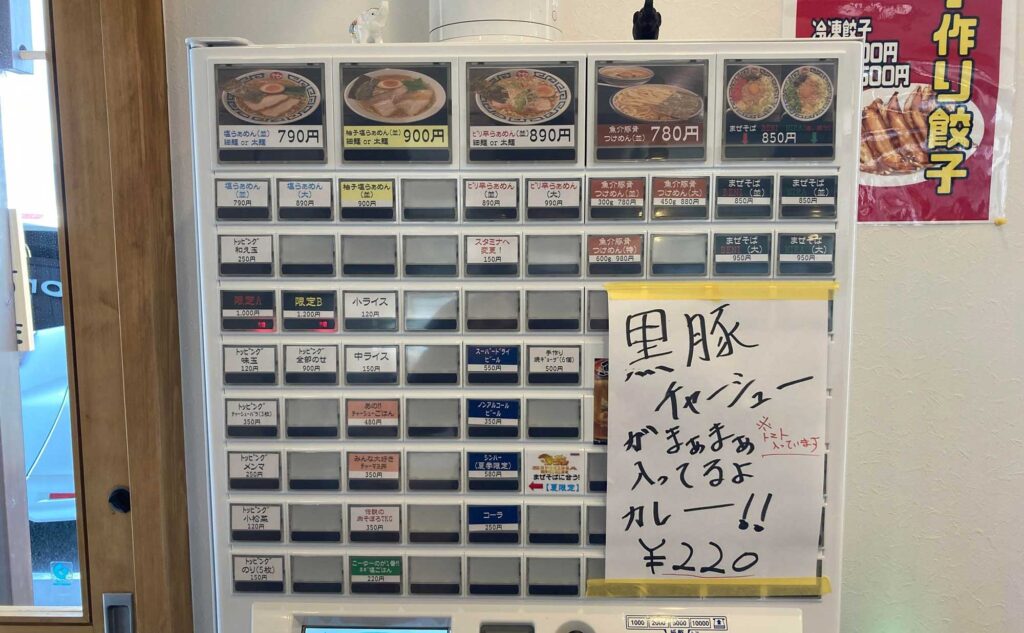 塩らぁめん(並) 790円
細麺 or 太麺
柚子塩らぁめん(並) 900円
細麺 or 太麺
ピリ辛らぁめん(並) 890円
細麺 or 太麺
魚介豚骨
つけめん(並) 780円
まぜそば
850円
冷凍餃子
00円
500円
手作り餃子
塩らぁめん
(並)
790円
塩らぁめん
(大)
890円
柚子塩らぁめん
(並)
900円
ピリ辛らぁめん
(並)
890円
ピリ辛らぁめん
(大)
990円
魚介豚骨
つけめん(並)
300g 780円
魚介豚骨
つけめん(大)
450g 880円
まぜそば
(並)
850円
まぜそば
(並)
850円
トッピング
和え玉
250円
スタミナへ
変更!
150円
魚介豚骨
つけめん(特)
600g 980円
まぜそば
(大)
950円
まぜそば
(大)
950円
限定A
1,000円
限定B
1,200円
小ライス
120円
トッピング
味玉
120円
トッピング
全部のせ
900円
中ライス
150円
スーパードライ
ビール
550円
手作り
焼ギョーザ(6個)
500円
トッピング
チャーシューバラ(3枚)
350円
あの!!
チャーシューごはん
480円
ノンアルコール
ビール
350円
トッピング
メンマ
250円
みんな大好き
チャーマヨ丼
350円
シンハー
(夏季限定)
580円
まぜそばに合う!
【夏限定】
トッピング
小松菜
120円
伝説の
肉そぼろTKG
350円
コーラ
250円
トッピング
のり(5枚)
150円
こーゆーのが1番!!
ネギ塩ごはん
220円
黒豚
チャーシュー
がまぁまぁ
入ってるよ
カレー!!
¥220
※
トマト
入っています
1000 2000 5000 10000